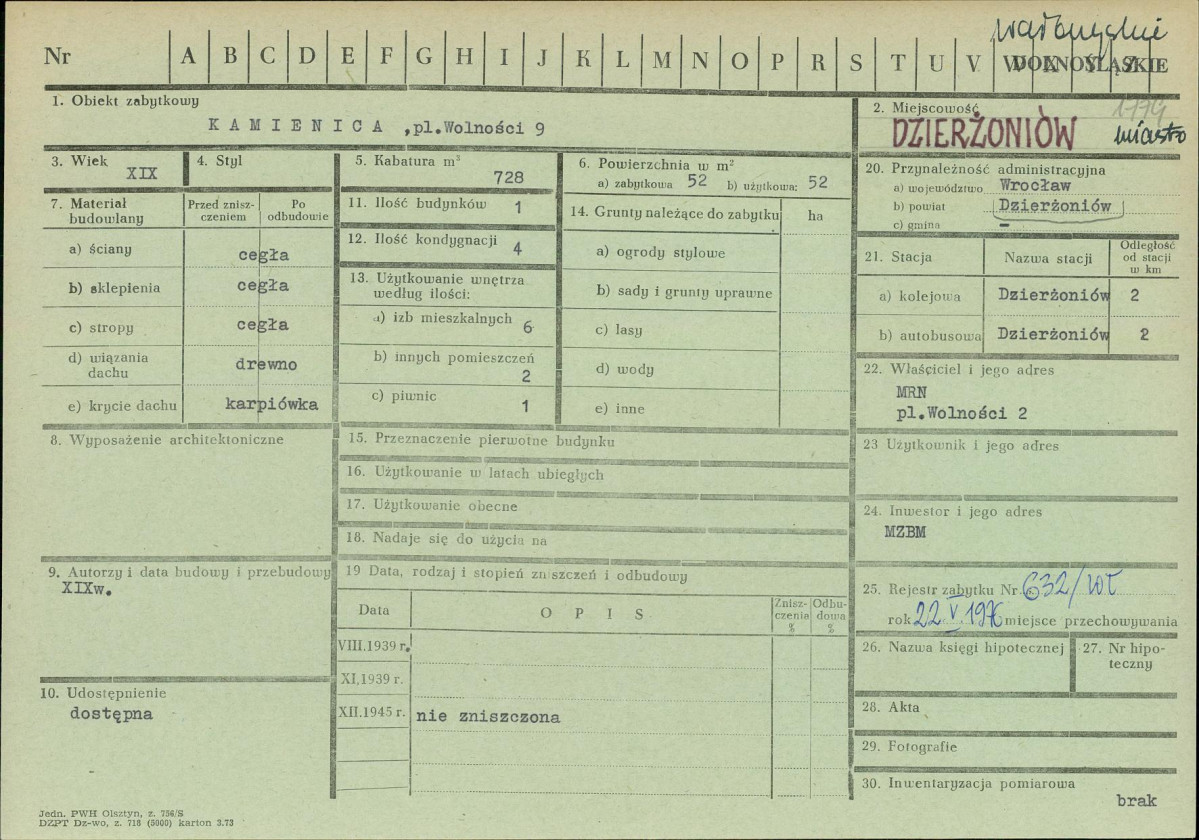 wałbrzyskie
Nr A B C D E F G H I J K L M N O P R S T U V DOLNOŚLĄSKIE
1. Obiekt zabytkowy
KAMIENICA ,pl.Wolności 9
2. Miejscowość 1774
DZIERŻONIÓW miasto
3. Wiek
XIX
4. Styl
5. Kabatura m³
728
6. Powierzchnia w m²
a) zabytkowa 52 b) użytkowa: 52
7. Materiał budowlany
Przed zniszczeniem
Po odbudowie
a) ściany cegła
b) sklepienia cegła
c) stropy cegła
d) wiązania dachu drewno
e) krycie dachu karpiówka
8. Wyposażenie architektoniczne
9. Autorzy i data budowy i przebudowy
XIXw.
10. Udostępnienie
dostępna
11. Ilość budynków 1
12. Ilość kondygnacji
4
13. Użytkowanie wnętrza
według ilości:
a) izb mieszkalnych 6
b) innych pomieszczeń
2
c) piwnic
1
14. Grunty należące do zabytku ha
a) ogrody stylowe
b) sady i grunty uprawne
c) lasy
d) wody
e) inne
15. Przeznaczenie pierwotne budynku
16. Użytkowanie w latach ubiegłych
17. Użytkowanie obecne
18. Nadaje się do użycia na
19 Data, rodzaj i stopień zniszczeń i odbudowy
Data
O P I S
Zniszczenia %
Odbudowa %
VIII.1939 r.
XI,1939 r.
XII.1945 r. nie zniszczona
20. Przynależność administracyjna
a) województwo Wrocław
b) powiat Dzierżoniów
c) gmina –
21. Stacja
Nazwa stacji
Odległość
od stacji
w km
a) kolejowa Dzierżoniów 2
b) autobusowa Dzierżoniów 2
22. Właściciel i jego adres
MRN
pl.Wolności 2
23 Użytkownik i jego adres
24. Inwestor i jego adres
MZBM
25. Rejestr zabytku Nr 632/Wł
rok 22 V 1976 miejsce przechowywania
26. Nazwa księgi hipotecznej
27. Nr hipoteczny
28. Akta
29. Fotografie
30. Inwentaryzacja pomiarowa
brak
Jedn. PWH Olsztyn, z. 756/S
DZPT Dz-wo, z. 718 (5000) karton 3.73